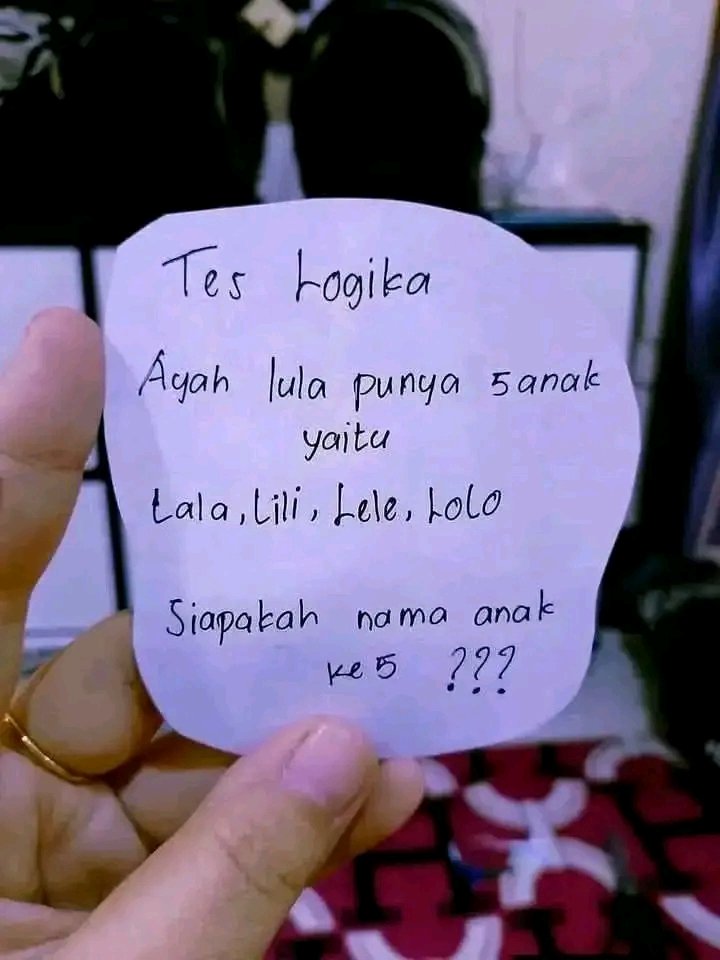 Tes Logika
Ayah lula punya 5 anak
yaitu
Lala, Lili, Lele, Lolo
Siapakah nama anak
ke 5 ???